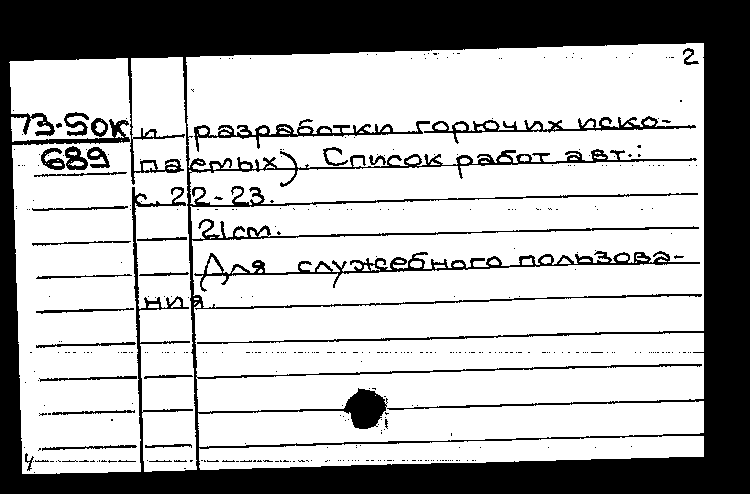 2
73-50к и разработки горючих иско-
689 паемых). Список работ авт.:
с. 22-23.
21см.
Для служебного пользова-
ния.